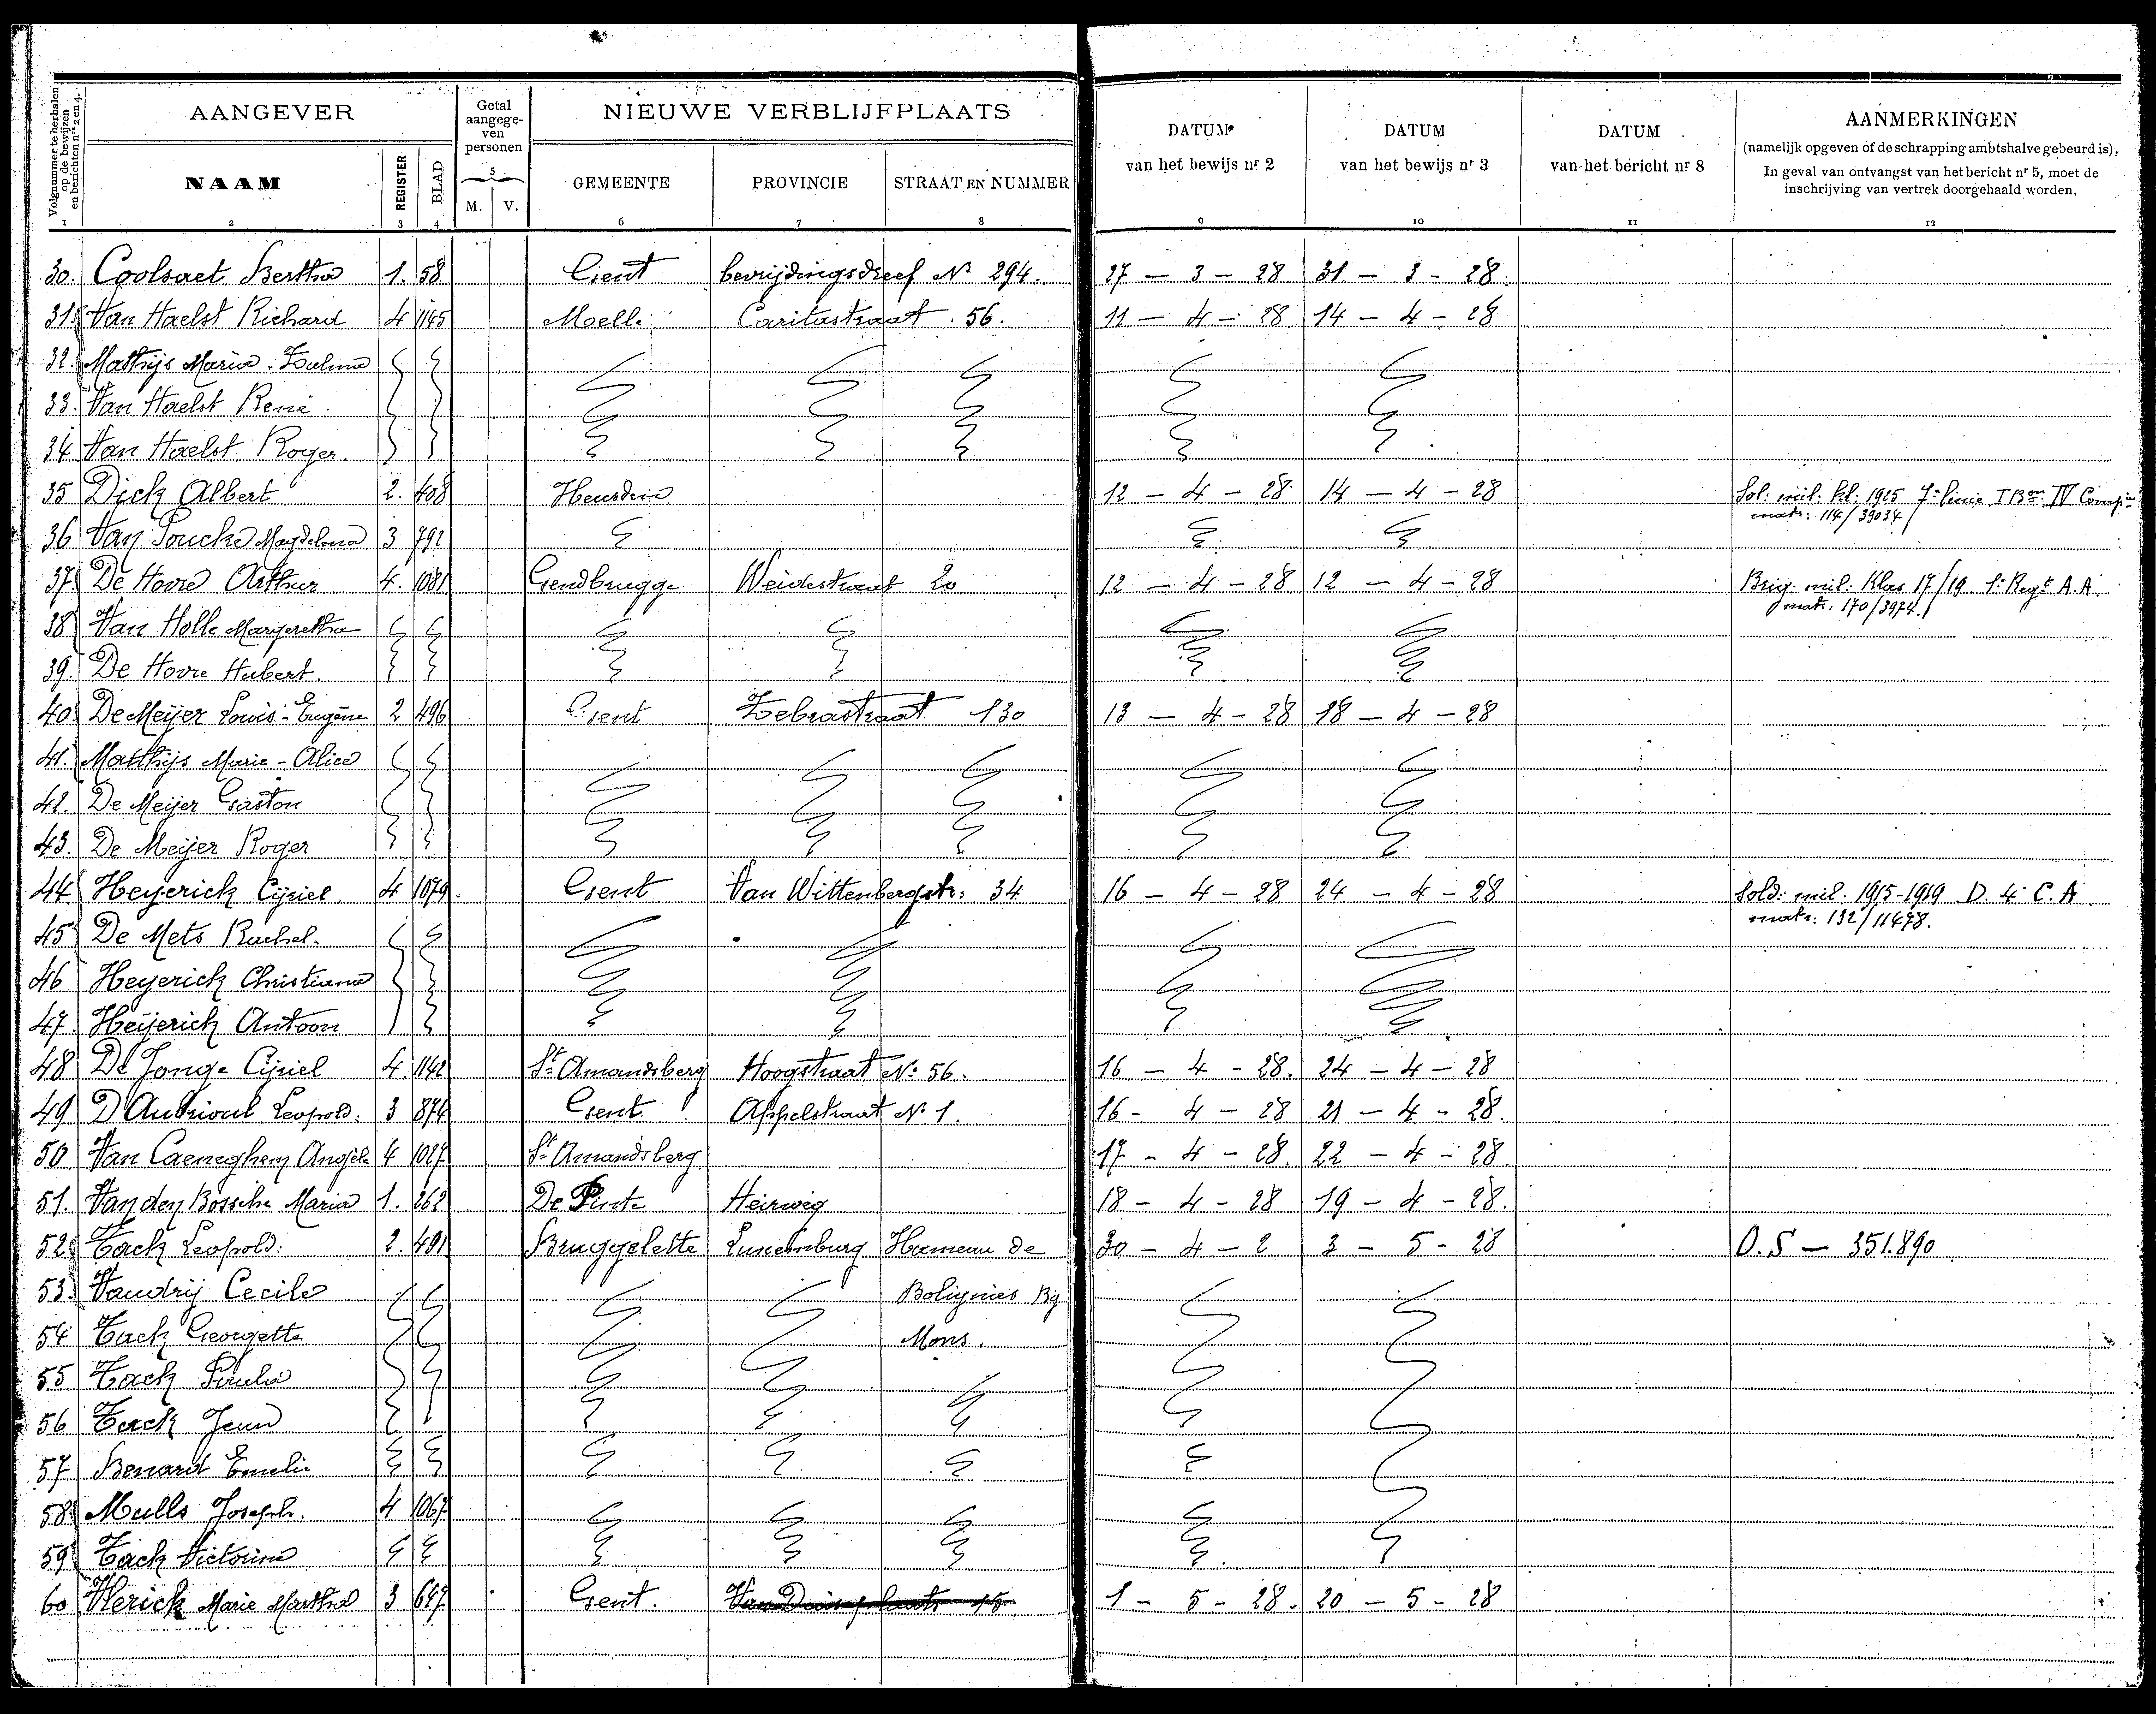 Volgnummer te herhalen op de bewijzen en berichten nrs 2 en 4.
AANGEVER
Getal aangege- ven personen
NIEUWE VERBLIJFPLAATS
DATUM van het bewijs nr 2
DATUM van het bewijs nr 3
DATUM van het bericht nr 8
AANMERKINGEN
(namelijk opgeven of de schrapping ambtshalve gebeurd is),
In geval van ontvangst van het bericht nr 5, moet de
inschrijving van vertrek doorgehaald worden.
NAAM REGISTER BLAD 5 M. V. GEMEENTE PROVINCIE STRAAT EN NUMMER
1 2 3 4 6 7 8 9 10 11 12
30. Coolsaet Bertha 1. 58 Gent bevrijdingsdreef No 294. 27 - 3 - 28 31 - 3 - 28.
31. Van Haelst Richard 4 1145 Melle Caritastraat 56. 11 - 4 - 28 14 - 4 - 28
32. Mathijs Maria - Zulma
33. Van Haelst René
34 Van Haelst Roger.
35 Dick Albert 2. 408 Heusden 12 - 4 - 28 14 - 4 - 28 Sol: mil. kl: 1925 7e linie I Bon IV Compie
matr: 114/39034
36 Van Poucke Magdelena 3 792
37 De Hovre Arthur 4. 1081 Gendbrugge Weidestraat 20 12 - 4 - 28 12 - 4 - 28 Brig. mil: Klas 17/19 1e Regt A.A.
matr: 170/3974.
38 Van Holle Margeretha
39. De Hovre Hubert.
40 De Meijer Louis - Eugène 2 496 Gent Zebrastraat 130 13 - 4 - 28 18 - 4 - 28
41. Matthijs Marie - Alice
42. De Meijer Gaston
43. De Meijer Roger
44 Heyerick Cijriel. 4 1079. Gent Van Wittenbergstr: 34 16 - 4 - 28 24 - 4 - 28 Sold: mil: 1915-1919 D. 4 C. A.
matr: 132/11478.
45 De Mets Rachel.
46 Heyerick Christiana
47. Heijerick Antoon
48 De Jonge Cijriel 4. 1142 St Amandsberg Hoogstraat No 56. 16 - 4 - 28. 24 - 4 - 28
49 D'Autrioul Leopold: 3 874 Gent. Appelstraat No 1. 16 - 4 - 28 21 - 4 - 28.
50 Van Caeneghem Angèle 4 1027 St Amandsberg 17 - 4 - 28. 22 - 4 - 28.
51. Van den Bossche Maria 1. 262 De Pinte Heirweg 18 - 4 - 28 19 - 4 - 28.
52 Tack Leopold: 2. 491 Bruggelette Luxemburg Hameau de 30 - 4 - 2 3 - 5 - 28 O.S - 351.890
53. Vaudrij Cecile Bolignies Bij
54 Tack Georgette Mons.
55 Tack Paula
56 Tack Jean
57 Benard Emelie
58 Mulls Joseph. 4 1067
59 Tack Victorine
60 Vlerick Marie Martha 3 647 Gent. 1 - 5 - 28. 20 - 5 - 28